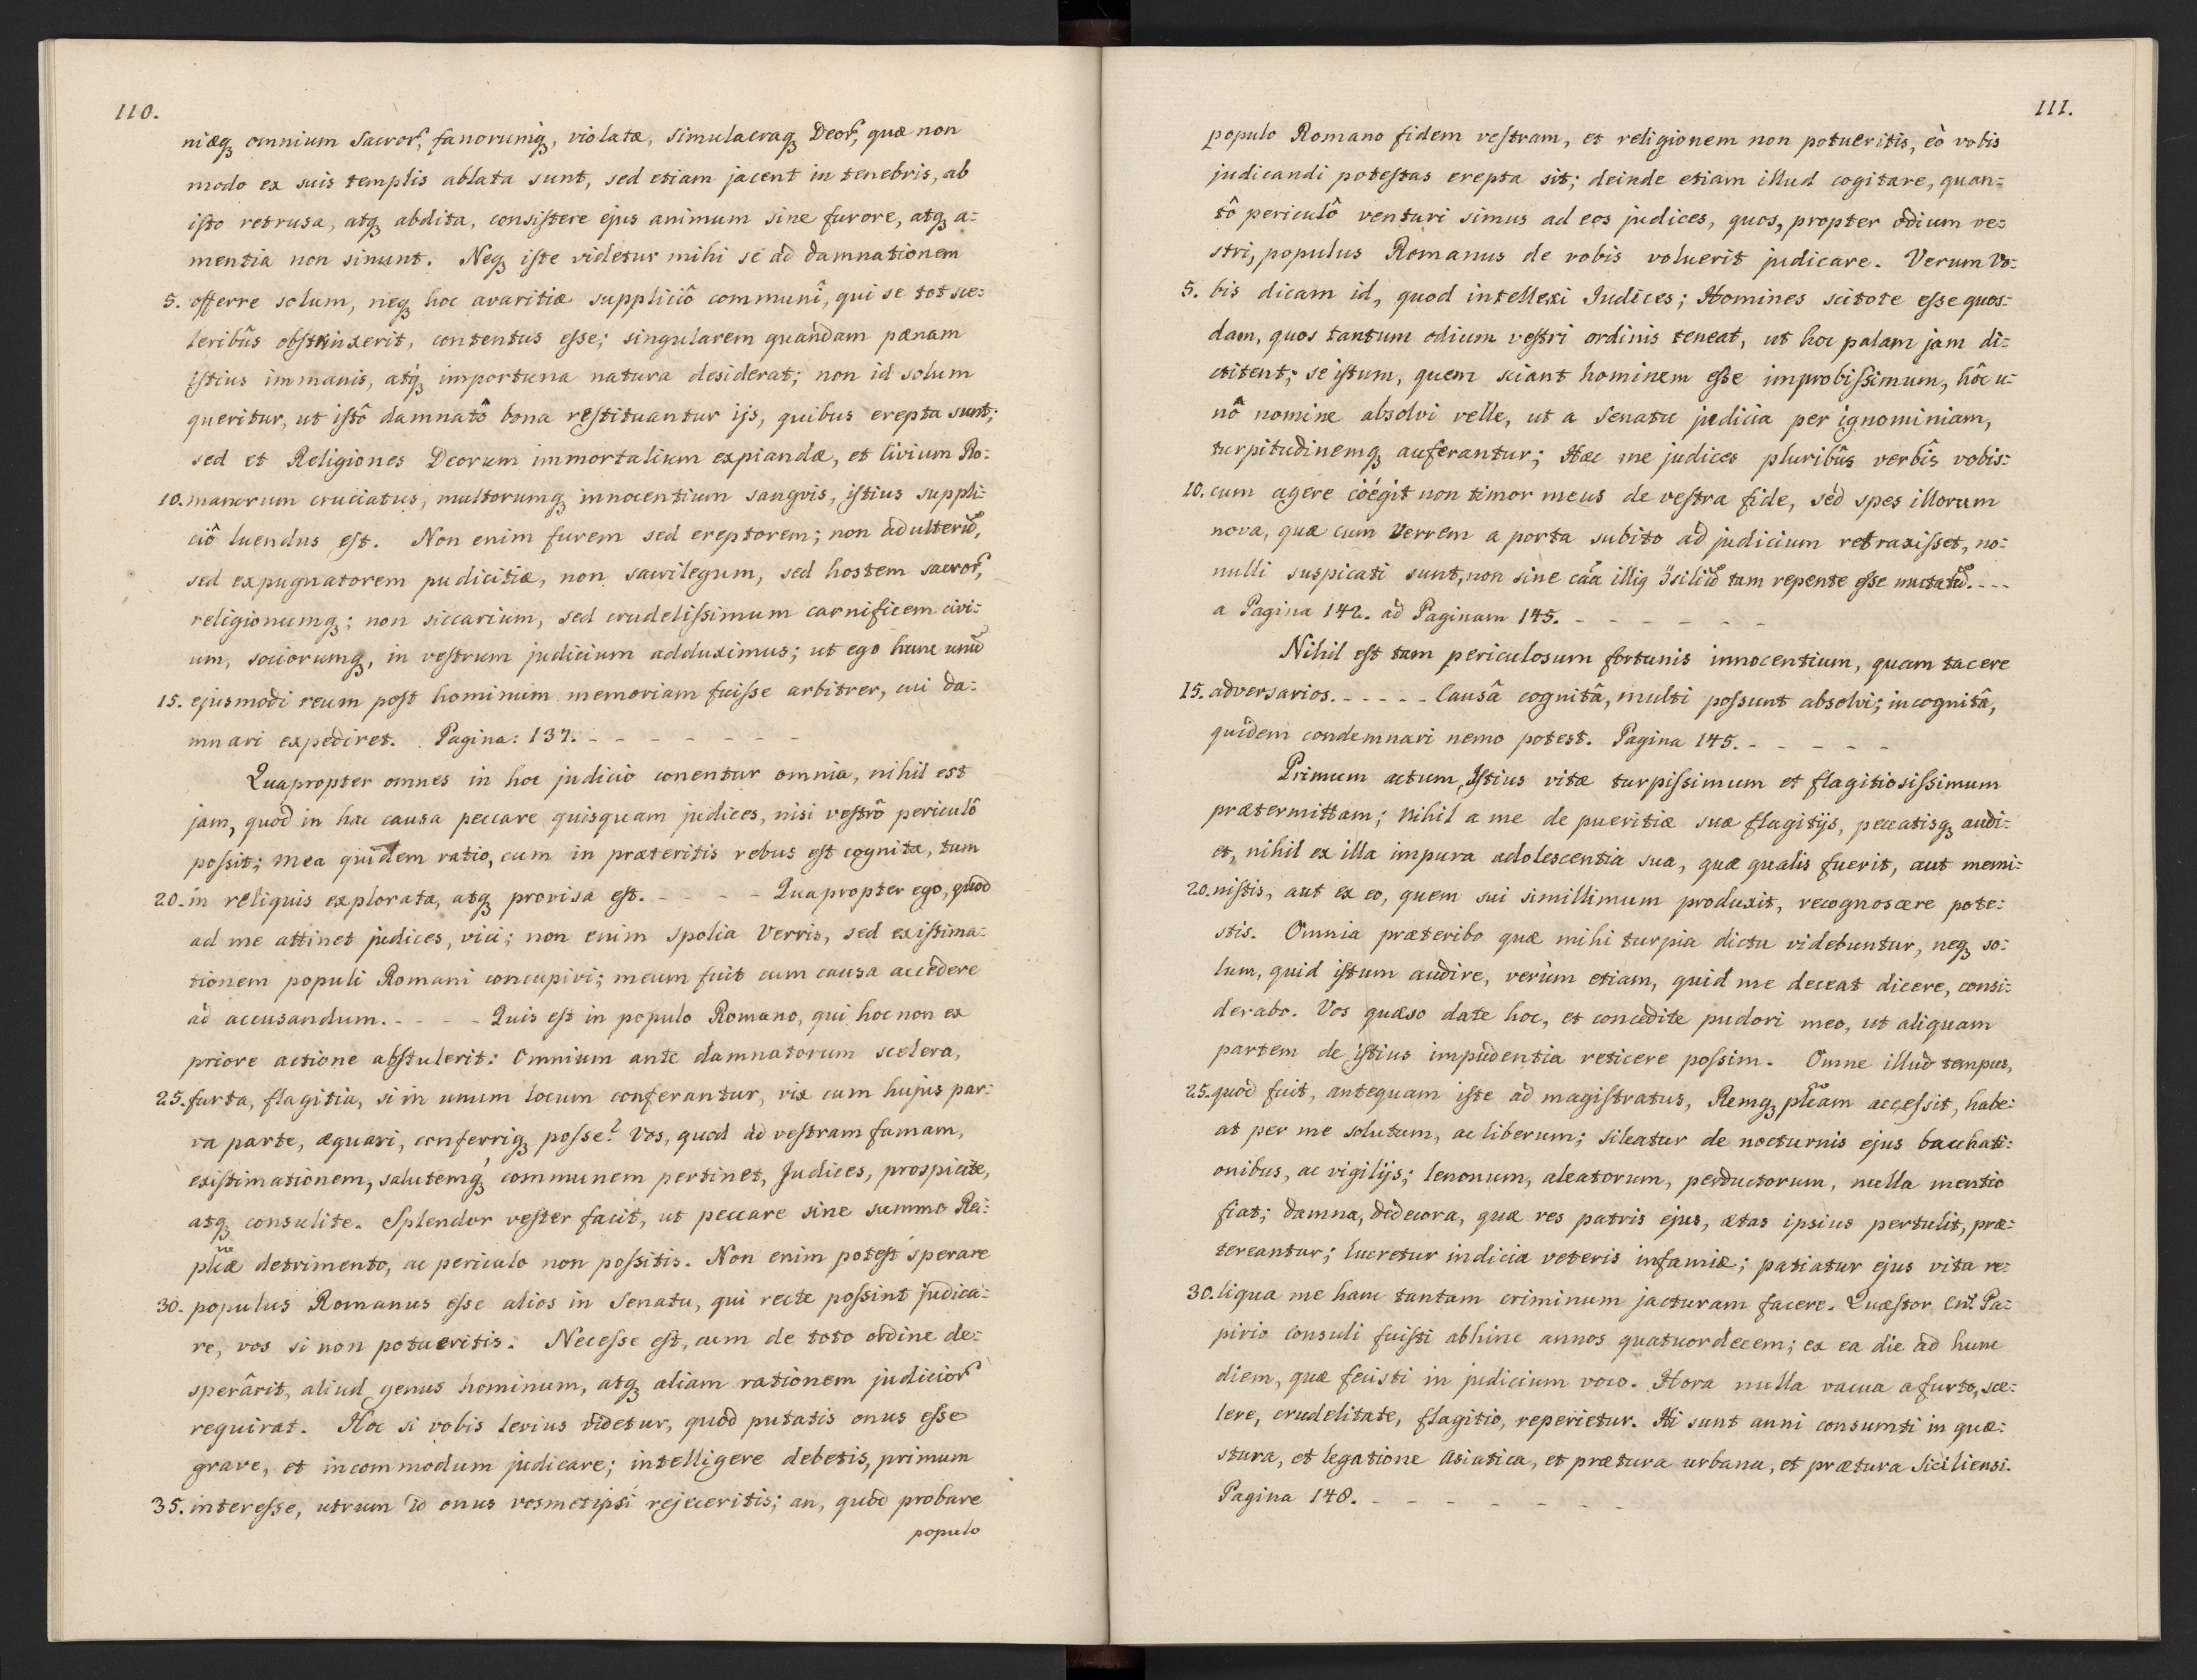 110.
niæq₃ omnium Sacror̃, fanorumq₃, violatæ, simulacraq₃ Deor̃, quæ non
modo ex suis templis ablata sunt, sed etiam jacent in tenebris, ab
iſto retrusa, atq₃ abdita, consiſtere ejus animum sine furore, atq₃ a=
mentia non sinunt. Neq₃ iſte videtur mihi se ad damnationem
5. offerre solum, neq₃ hoc avaritiæ suppliciô communî, qui se tot sce=
leribûs obſtrinxerit, contentus eſse; singularem quandam pænam
iſtius immanis, atq₃ importuna natura desiderat; non id solum
queritur, ut iſtô damnatô bona reſtituantur ijs, quibus erepta sunt;
sed et Religiones Deorum immortalium expiandæ, et Civium Ro=
10. manorum cruciatus, multorumq₃ innocentium sangvis, iſtius suppli=
ciô luendus eſt. Non enim furem sed ereptorem; non adulterũ,
sed expugnatorem pudicitiæ, non sacrilegum, sed hostem sacror̃,
religionumq₃; non siccarium, sed crudeliſsimum carnificem civi=
um, sociorumq₃, in veſtrum judicium adduximus; ut ego hunc unũ
15. ejusmodi reum poſt hominum memoriam fuiſse arbitrer, cui da=
mnari expediret. Pagina: 137. - - - - - - -
Quapropter omnes in hoc judicio conentur omnia, nihil est
jam, quod in hac causa peccare quisquam judices, nisi veſtrô periculô
poſsit; mea quidem ratio, cum in præteritis rebus eſt cognita, tum
20. in reliquis explorata, atq₃ provisa eſt. - - - - Quapropter ego, quod
ad me attinet judices, vici; non enim spolia Verris, sed exiſtima=
tionem populi Romani concupivi; meum fuit cum causa accedere
ad accusandum. - - - - Quis eſt in populo Romano, qui hoc non ex
priore actione abſtulerit: Omnium ante damnatorum scelera,
25. furta, flagitia, si in unum locum conferantur, vix cum hujus par=
va parte, æquari, conferriq₃ poſse? Vos, quod ad veſtram famam,
exiſtimationem, salutemq₃ communem pertinet, Judices, prospicite,
atq₃ consulite. Splendor veſter facit, ut peccare sine summo Rei=
plcæ detrimento, ac periculo non poſsitis. Non enim poteſt sperare
30. populus Romanus eſse alios in Senatu, qui recte poſsint judica=
re, vos si non potueritis. Neceſse eſt, cum de toto ordine de=
sperârit, aliud genus hominum, atq₃ aliam rationem judicior̃
requirat. Hoc si vobis levius videtur, quod putatis onus eſse
grave, et incommodum judicare; intelligere debetis, primum
35. intereſse, utrum id onus vosmetipsi rejeceritis; an, quod probare
populo
111.
populo Romano fidem veſtram, et religionem non potueritis, eò vobis
judicandi poteſtas erepta sit; deinde etiam illud cogitare, quan=
tô periculô venturi simus ad eos judices, quos, propter odium ve=
stri, populus Romanus de vobis voluerit judicare. Verum Vo=
5. bis dicam id, quod intellexi Iudices; Homines scitote eſse quos=
dam, quos tantum odium veſtri ordinis teneat, ut hoc palam jam di=
ctitent; se iſtum, quem sciant hominem eſse improbiſsimum, hôc u=
nô nomine absolvi velle, ut a Senatu judicia per ignominiam,
turpitudinemq₃ auferantur; Hæc me judices pluribûs verbîs vobis=
10. cum agere coégit non timor meus de veſtra fide, sed spes illorum
nova, quæ cum Verrem a porta subito ad judicium retraxiſset, no=
nulli suspicati sunt, non sine cãa illiq ↄ̈siliũ tam repente eſse mutatũ. - - -
a Pagina 142. ad Paginam 145. - - - - - -
Nihil eſt tam periculosum fortunis innocentium, quam tacere
15. adversarios. - - - - - Causâ cognitâ, multi poſsunt absolvi; incognitâ,
quidem condemnari nemo potest. Pagina 145. - - - - -
Primum actum, Iſtius vitæ turpiſsimum et flagitiosiſsimum
prætermittam; Nihil a me de pueritiæ suæ flagitijs, peccatisq₃ audi=
et, nihil ex illa impura adolescentia sua, quæ qualis fuerit, aut memi=
20. niſtis, aut ex eo, quem sui simillimum produxit, recognoscere pote=
stis. Omnia præteribo quæ mihi turpia dictu videbuntur, neq₃ so=
lum, quid iſtum audire, verùm etiam, quid me deceat dicere, consi=
derabo. Vos quæso date hoc, et concedite pudori meo, ut aliquam
partem de iſtius impudentia reticere poſsim. Omne illud tempus,
25. quod fuit, antequam iſte ad magiſtratus, Remq₃ plcam acceſsit, habe=
at per me solutum, ac liberum; sileatur de nocturnis ejus bacchati=
onibus, ac vigilijs; lenonum, aleatorum, perductorum, nulla mentio
fiat; damna, dedecora, quæ res patris ejus, ætas ipsius pertulit, præ=
tereantur; lucretur indicia veteris infamiæ; patiatur ejus vita re=
30. liqua me hanc tantam criminum jacturam facere. Quæſtor Cn. Pa=
pirio Consuli fuiſti abhinc annos quatuordecem; ex ea die ad hunc
diem, quæ fecisti in judicium voco. Hora nulla vacua a furto, sce=
lere, crudelitate, flagitio, reperietur. Hi sunt anni consumti in quæ=
stura, et legatione Asiatica, et prætura urbana, et prætura Siciliensi.
Pagina 148. - - - - - - -